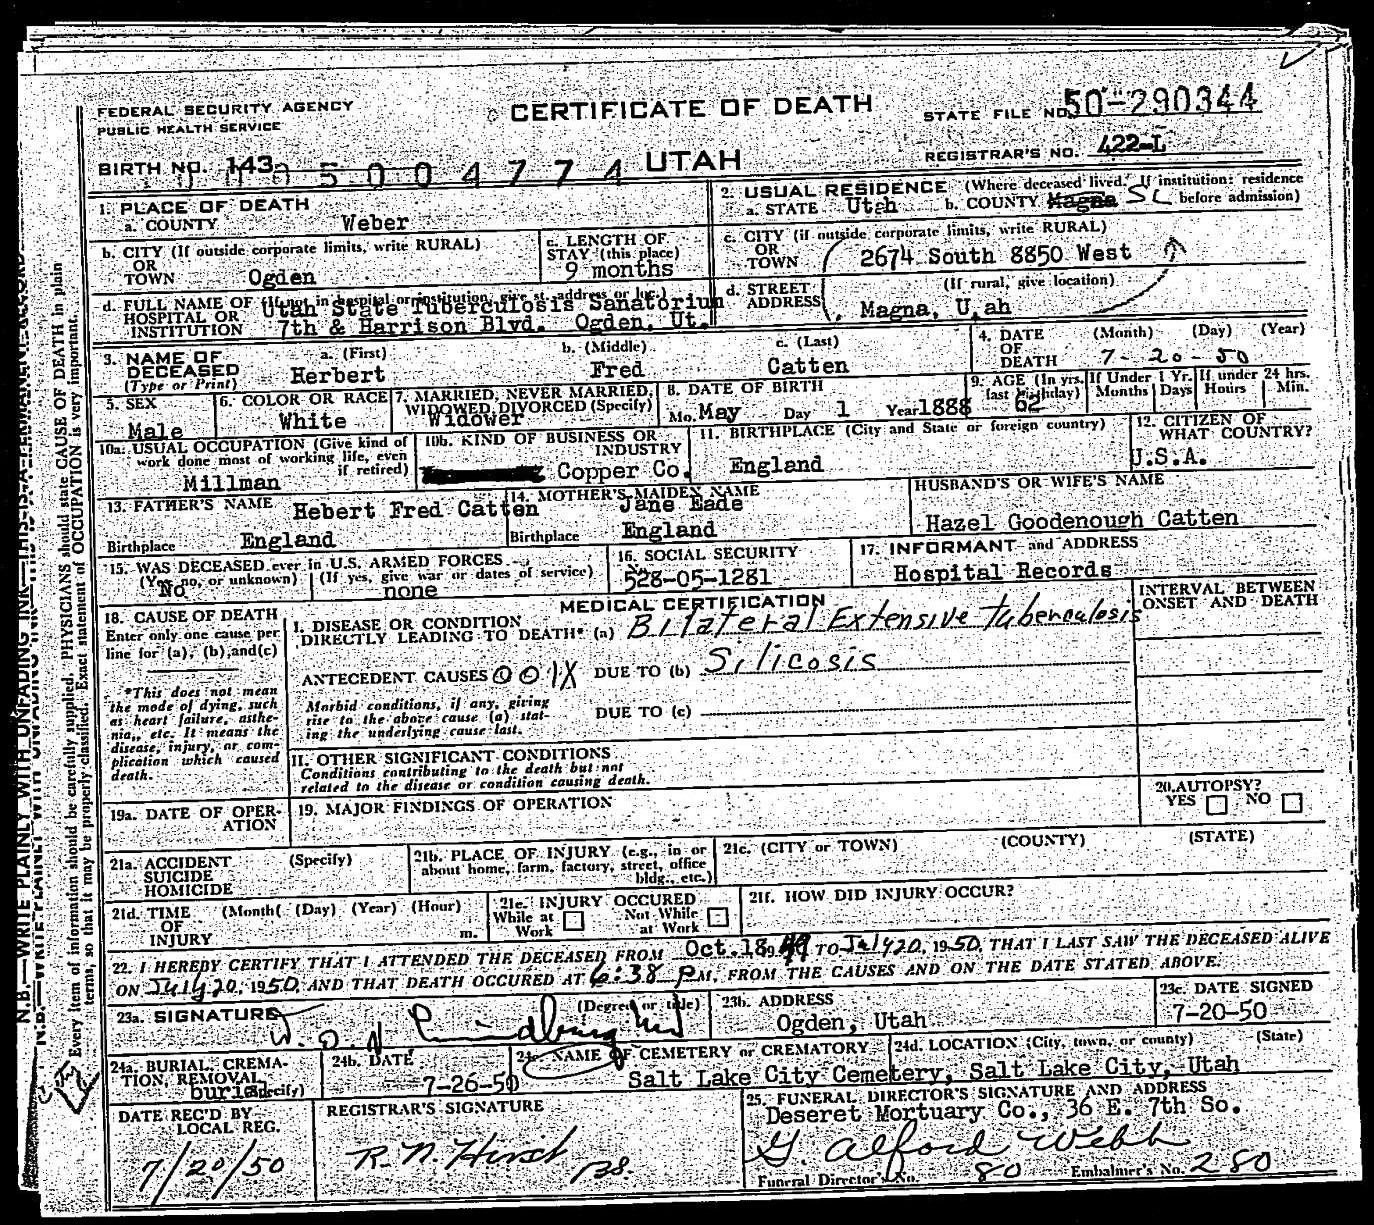 FEDERAL SECURITY AGENCY
PUBLIC HEALTH SERVICE
CERTIFICATE OF DEATH
STATE FILE NO. 50-290344
BIRTH NO. 143
5004774
UTAH
REGISTRAR'S NO. 422-L
1. PLACE OF DEATH
a. COUNTY Weber
2. USUAL RESIDENCE (Where deceased lived. If institution: residence before admission)
a. STATE Utah b. COUNTY Magna SL
b. CITY (If outside corporate limits, write RURAL)
OR
TOWN Ogden
c. LENGTH OF
STAY (this place)
9 months
c. CITY (if outside corporate limits, write RURAL)
OR
TOWN 2674 South 8850 West
d. FULL NAME OF (If not in hospital or institution, give st. address or loc.)
HOSPITAL OR
INSTITUTION
Utah State Tuberculosis Sanatorium
7th & Harrison Blvd. Ogden, Ut.
d. STREET
ADDRESS
(If rural, give location)
Magna, Utah
3. NAME OF
DECEASED
(Type or Print)
a. (First) b. (Middle) c. (Last)
Herbert Fred Catten
4. DATE
OF
DEATH
(Month) (Day) (Year)
7-20-50
5. SEX
Male
6. COLOR OR RACE
White
7. MARRIED, NEVER MARRIED,
WIDOWED, DIVORCED (Specify)
Widower
8. DATE OF BIRTH
Mo. May Day 1 Year 1888
9. AGE (In yrs.
last birthday)
62
If Under 1 Yr.
Months Days
If under 24 hrs.
Hours Min.
10a. USUAL OCCUPATION (Give kind of
work done most of working life, even
if retired)
Millman
10b. KIND OF BUSINESS OR
INDUSTRY
Copper Co.
11. BIRTHPLACE (City and State or foreign country)
England
12. CITIZEN OF
WHAT COUNTRY?
U.S.A.
13. FATHER'S NAME Hebert Fred Catten
Birthplace England
14. MOTHER'S MAIDEN NAME
Jane Eade
Birthplace England
HUSBAND'S OR WIFE'S NAME
Hazel Goodenough Catten
15. WAS DECEASED ever in U.S. ARMED FORCES
(Yes, no, or unknown) (If yes, give war or dates of service)
No none
16. SOCIAL SECURITY
No.
528-05-1281
17. INFORMANT and ADDRESS
Hospital Records
18. CAUSE OF DEATH
Enter only one cause per
line for (a), (b), and (c)
*This does not mean
the mode of dying, such
as heart failure, asthe-
nia, etc. It means the
disease, injury, or com-
plication which caused
death.
MEDICAL CERTIFICATION
INTERVAL BETWEEN
ONSET AND DEATH
I. DISEASE OR CONDITION
DIRECTLY LEADING TO DEATH* (a) Bilateral Extensive tuberculosis
ANTECEDENT CAUSES 001X DUE TO (b) Silicosis
Morbid conditions, if any, giving
rise to the above cause (a) stat-
ing the underlying cause last.
DUE TO (c)
II. OTHER SIGNIFICANT CONDITIONS
Conditions contributing to the death but not
related to the disease or condition causing death.
19a. DATE OF OPER-
ATION
19. MAJOR FINDINGS OF OPERATION
20. AUTOPSY?
YES NO
21a. ACCIDENT
SUICIDE
HOMICIDE
(Specify)
21b. PLACE OF INJURY (e.g., in or
about home, farm, factory, street, office
bldg., etc.)
21c. (CITY or TOWN) (COUNTY) (STATE)
21d. TIME
OF
INJURY
(Month( (Day) (Year) (Hour)
m.
21e. INJURY OCCURED
While at
Work
Not While
at Work
21f. HOW DID INJURY OCCUR?
22. I HEREBY CERTIFY THAT I ATTENDED THE DECEASED FROM Oct. 18 1949 TO July 20, 1950, THAT I LAST SAW THE DECEASED ALIVE
ON July 20, 1950, AND THAT DEATH OCCURED AT 6:38 PM, FROM THE CAUSES AND ON THE DATE STATED ABOVE.
23a. SIGNATURE (Degree or title)
23b. ADDRESS
Ogden, Utah
23c. DATE SIGNED
7-20-50
24a. BURIAL, CREMA-
TION, REMOVAL
(Specify)
burial
24b. DATE
7-26-50
24c. NAME OF CEMETERY or CREMATORY
Salt Lake City Cemetery,
24d. LOCATION (City, town, or county) (State)
Salt Lake City, Utah
DATE REC'D BY
LOCAL REG.
7/20/50
REGISTRAR'S SIGNATURE
R. N. Hirst
25. FUNERAL DIRECTOR'S SIGNATURE AND ADDRESS
Deseret Mortuary Co., 36 E. 7th So.
G. Alford Webb
Funeral Director's No. 80 Embalmer's No. 280
N.B.—WRITE PLAINLY WITH UNFADING INK—THIS IS A PERMANENT RECORD
Every item of information should be carefully supplied. PHYSICIANS should state CAUSE OF DEATH in plain
terms, so that it may be properly classified. Exact statement of OCCUPATION is very important.